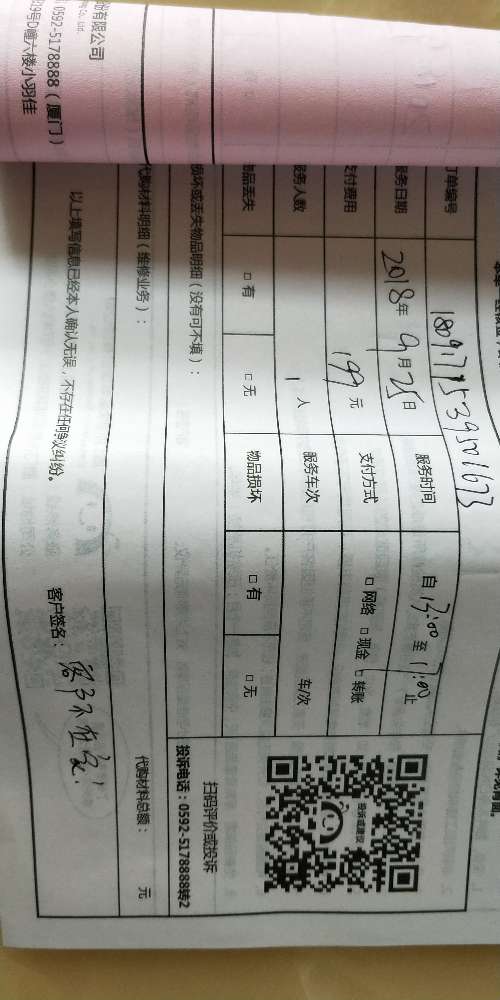 订单编号 1809177539501673
服务日期 2018年 9月25日 服务时间 自 13:00 至 17:00 止
支付费用 199 元 支付方式 □ 网络 □ 现金 □ 转账
服务人数 1 人 服务车次 车/次
物品丢失 □ 有 □ 无 物品损坏 □ 有 □ 无
损坏或丢失物品明细（没有可不填）：
代购材料明细（维修业务）：
代购材料总额： 元
以上填写信息已经本人确认无误，不存在任何争议纠纷。
客户签名： 客户不在家
扫码评价或投诉
投诉电话：0592-5178888转2
投诉或建议
份有限公司
Co., Ltd.
0592-5178888（厦门）
29号D幢六楼小羽佳